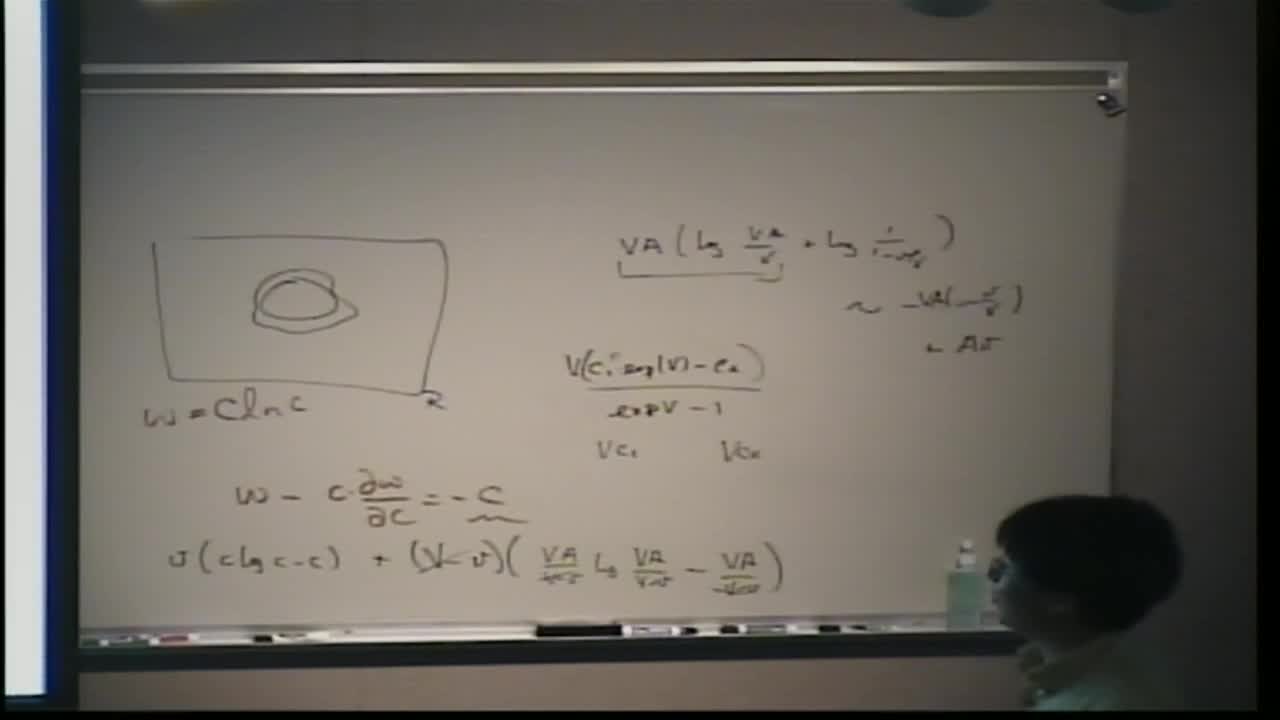 VA ( log VA/v + log 1/1-v/V )
~ -VA(-v/V)
+ Av
V(Ci exp(V) - Ce)
exp V - 1
VCi VCe
R
W = C ln C
W - C · ∂W/∂C = - C
v ( c log c - c ) + (V - v) ( VA/V-v log VA/V-v - VA/V-v )